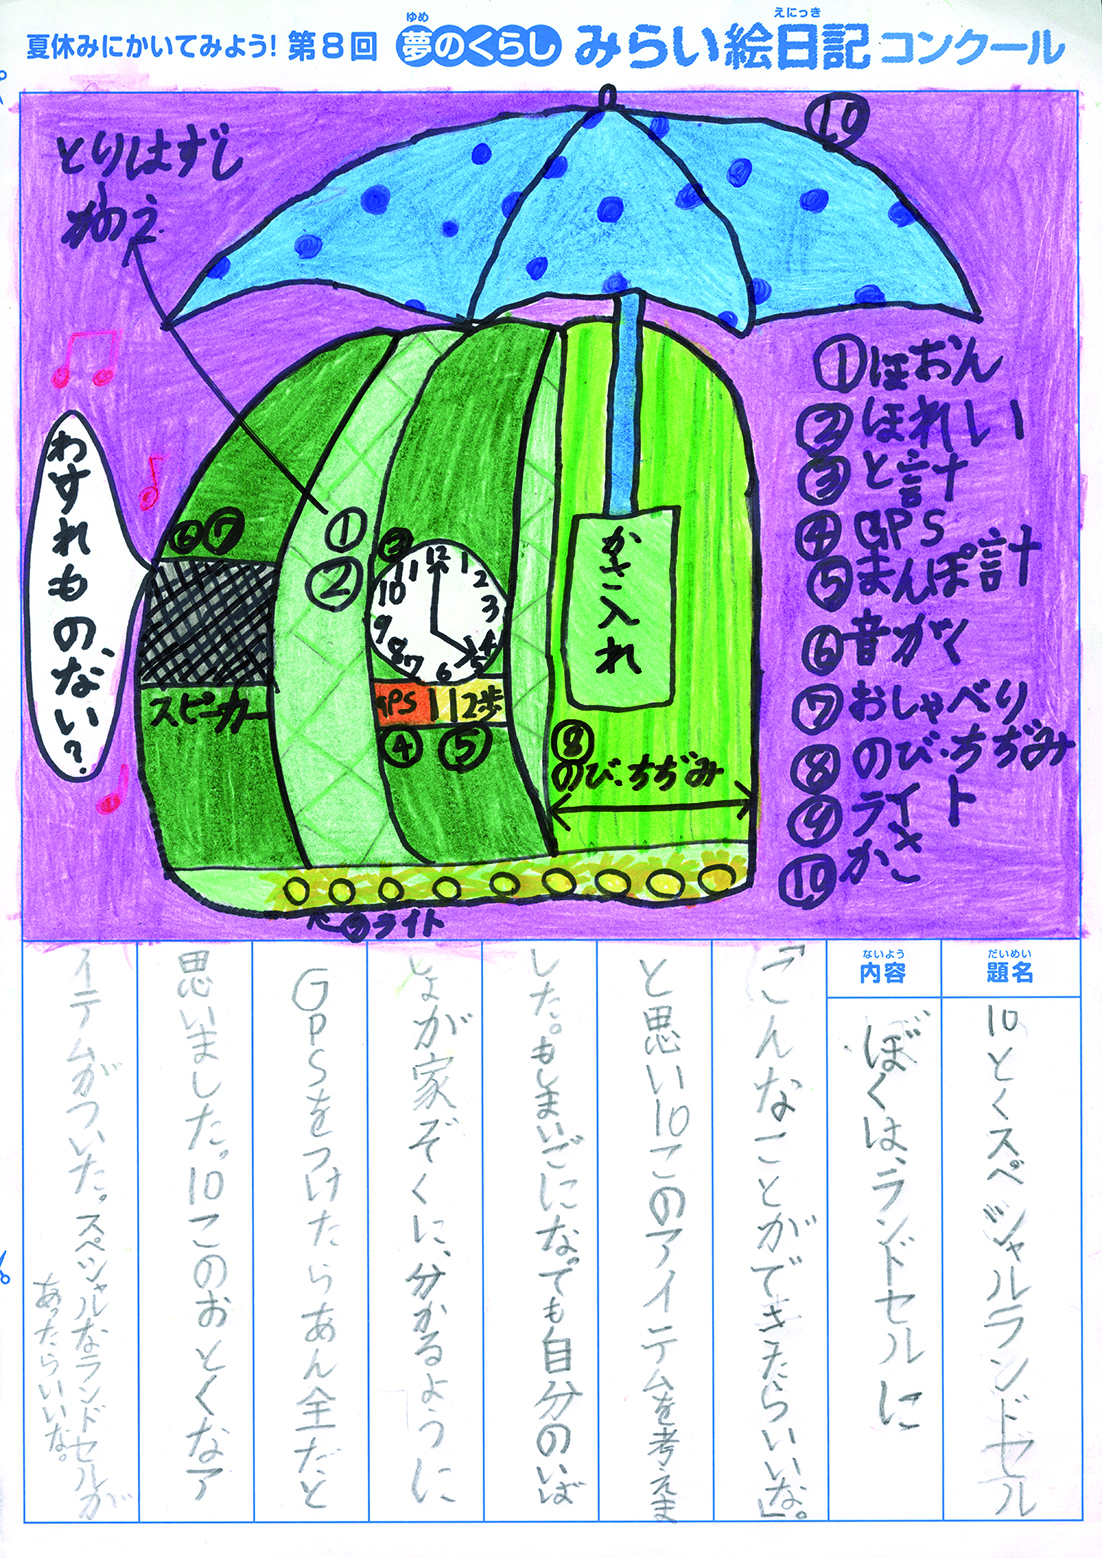 夏休みにかいてみよう! 第8回 夢のくらし みらい絵日記 コンクール
ゆめ
えにっき
とりはずし
かのう
⑩
わすれもの、ない?
⑥⑦
スピーカー
①
②
③
12
1
2
3
4
5
6
7
8
9
10
11
GPS
12歩
④
⑤
かさ入れ
⑧
のび・ちぢみ
⑨ライト
①ほおん
②ほれい
③と計
④GPS
⑤まんぽ計
⑥音がく
⑦おしゃべり
⑧のび・ちぢみ
⑨ライト
⑩かさ
だいめい
題名
10とくスペシャルランドセル
ないよう
内容
ぼくは、ランドセルに
「こんなことができたらいいな」。
と思い10このアイテムを考えま
した。もしまいごになっても自分のいば
しょが家ぞくに、分かるように
GPSをつけたらあん全だと
思いました。10このおとくなア
イテムがついた。スペシャルなランドセルが
あったらいいな。